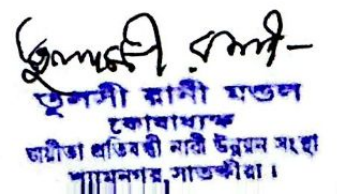 তুলসী রানী
তুলসী রানী মণ্ডল
কোষাধ্যক্ষ
জয়ীতা প্রতিবন্ধী নারী উন্নয়ন সংস্থা
শ্যামনগর, সাতক্ষীরা।